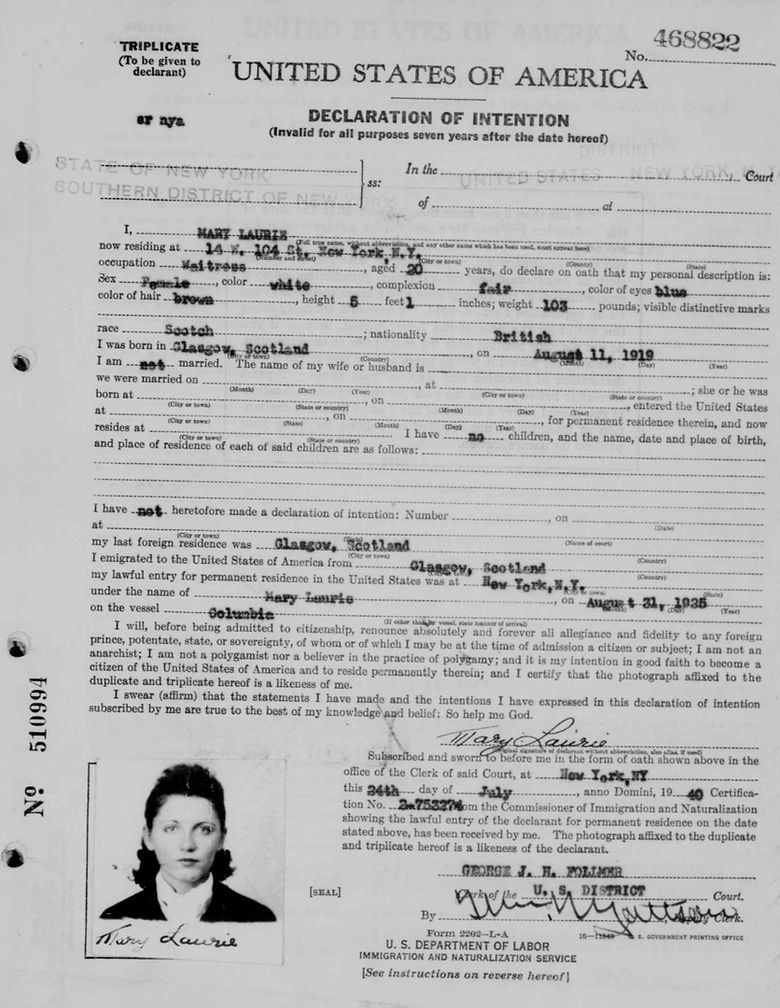 TRIPLICATE
(To be given to
declarant)
No. 468822
UNITED STATES OF AMERICA
er nya
DECLARATION OF INTENTION
(Invalid for all purposes seven years after the date hereof)
STATE OF NEW YORK
SOUTHERN DISTRICT OF NEW YORK
ss:
In the UNITED STATES Court
DISTRICT
of NEW YORK, N.Y. at
I, MARY LAURIE
(Full true name, without abbreviation, and any other name which has been used, must appear here)
now residing at 14 W. 104 St. New York, N.Y.
(Number and street) (City or town) (County) (State)
occupation Waitress, aged 20 years, do declare on oath that my personal description is:
Sex Female, color white, complexion fair, color of eyes blue
color of hair brown, height 5 feet 1 inches; weight 103 pounds; visible distinctive marks
race Scotch; nationality British
I was born in Glasgow, Scotland, on August 11, 1919
(City or town) (Country) (Month) (Day) (Year)
I am not married. The name of my wife or husband is
we were married on, at; she or he was
(Month) (Day) (Year) (City or town) (State or country)
born at, on, entered the United States
(City or town) (State or country) (Month) (Day) (Year)
at, on, for permanent residence therein, and now
(City or town) (State) (Month) (Day) (Year)
resides at I have no children, and the name, date and place of birth,
(City or town) (State or country)
and place of residence of each of said children are as follows:
I have not heretofore made a declaration of intention: Number, on
(Date)
at
(City or town) (State) (Name of court)
my last foreign residence was Glasgow, Scotland
(City or town) (Country)
I emigrated to the United States of America from Glasgow, Scotland
(City or town) (Country)
my lawful entry for permanent residence in the United States was at New York, N.Y.
(City or town) (State)
under the name of Mary Laurie, on August 31, 1925
(Month) (Day) (Year)
on the vessel Columbia
(If other than by vessel, state manner of arrival)
I will, before being admitted to citizenship, renounce absolutely and forever all allegiance and fidelity to any foreign
prince, potentate, state, or sovereignty, of whom or of which I may be at the time of admission a citizen or subject; I am not an
anarchist; I am not a polygamist nor a believer in the practice of polygamy; and it is my intention in good faith to become a
citizen of the United States of America and to reside permanently therein; and I certify that the photograph affixed to the
duplicate and triplicate hereof is a likeness of me.
I swear (affirm) that the statements I have made and the intentions I have expressed in this declaration of intention
subscribed by me are true to the best of my knowledge and belief: So help me God.
Mary Laurie
(Original signature of declarant without abbreviation, also alias, if used)
Subscribed and sworn to before me in the form of oath shown above in the
office of the Clerk of said Court, at New York, NY
this 24th day of July, anno Domini, 1940 Certifica-
tion No. 2-753274 from the Commissioner of Immigration and Naturalization
showing the lawful entry of the declarant for permanent residence on the date
stated above, has been received by me. The photograph affixed to the duplicate
and triplicate hereof is a likeness of the declarant.
GEORGE J. H. FOLLMER
[SEAL]
Clerk of the U. S. DISTRICT Court.
By Clerk.
Form 2202-L-A
U. S. GOVERNMENT PRINTING OFFICE
U. S. DEPARTMENT OF LABOR
IMMIGRATION AND NATURALIZATION SERVICE
[See instructions on reverse hereof]
No 510994
Mary Laurie